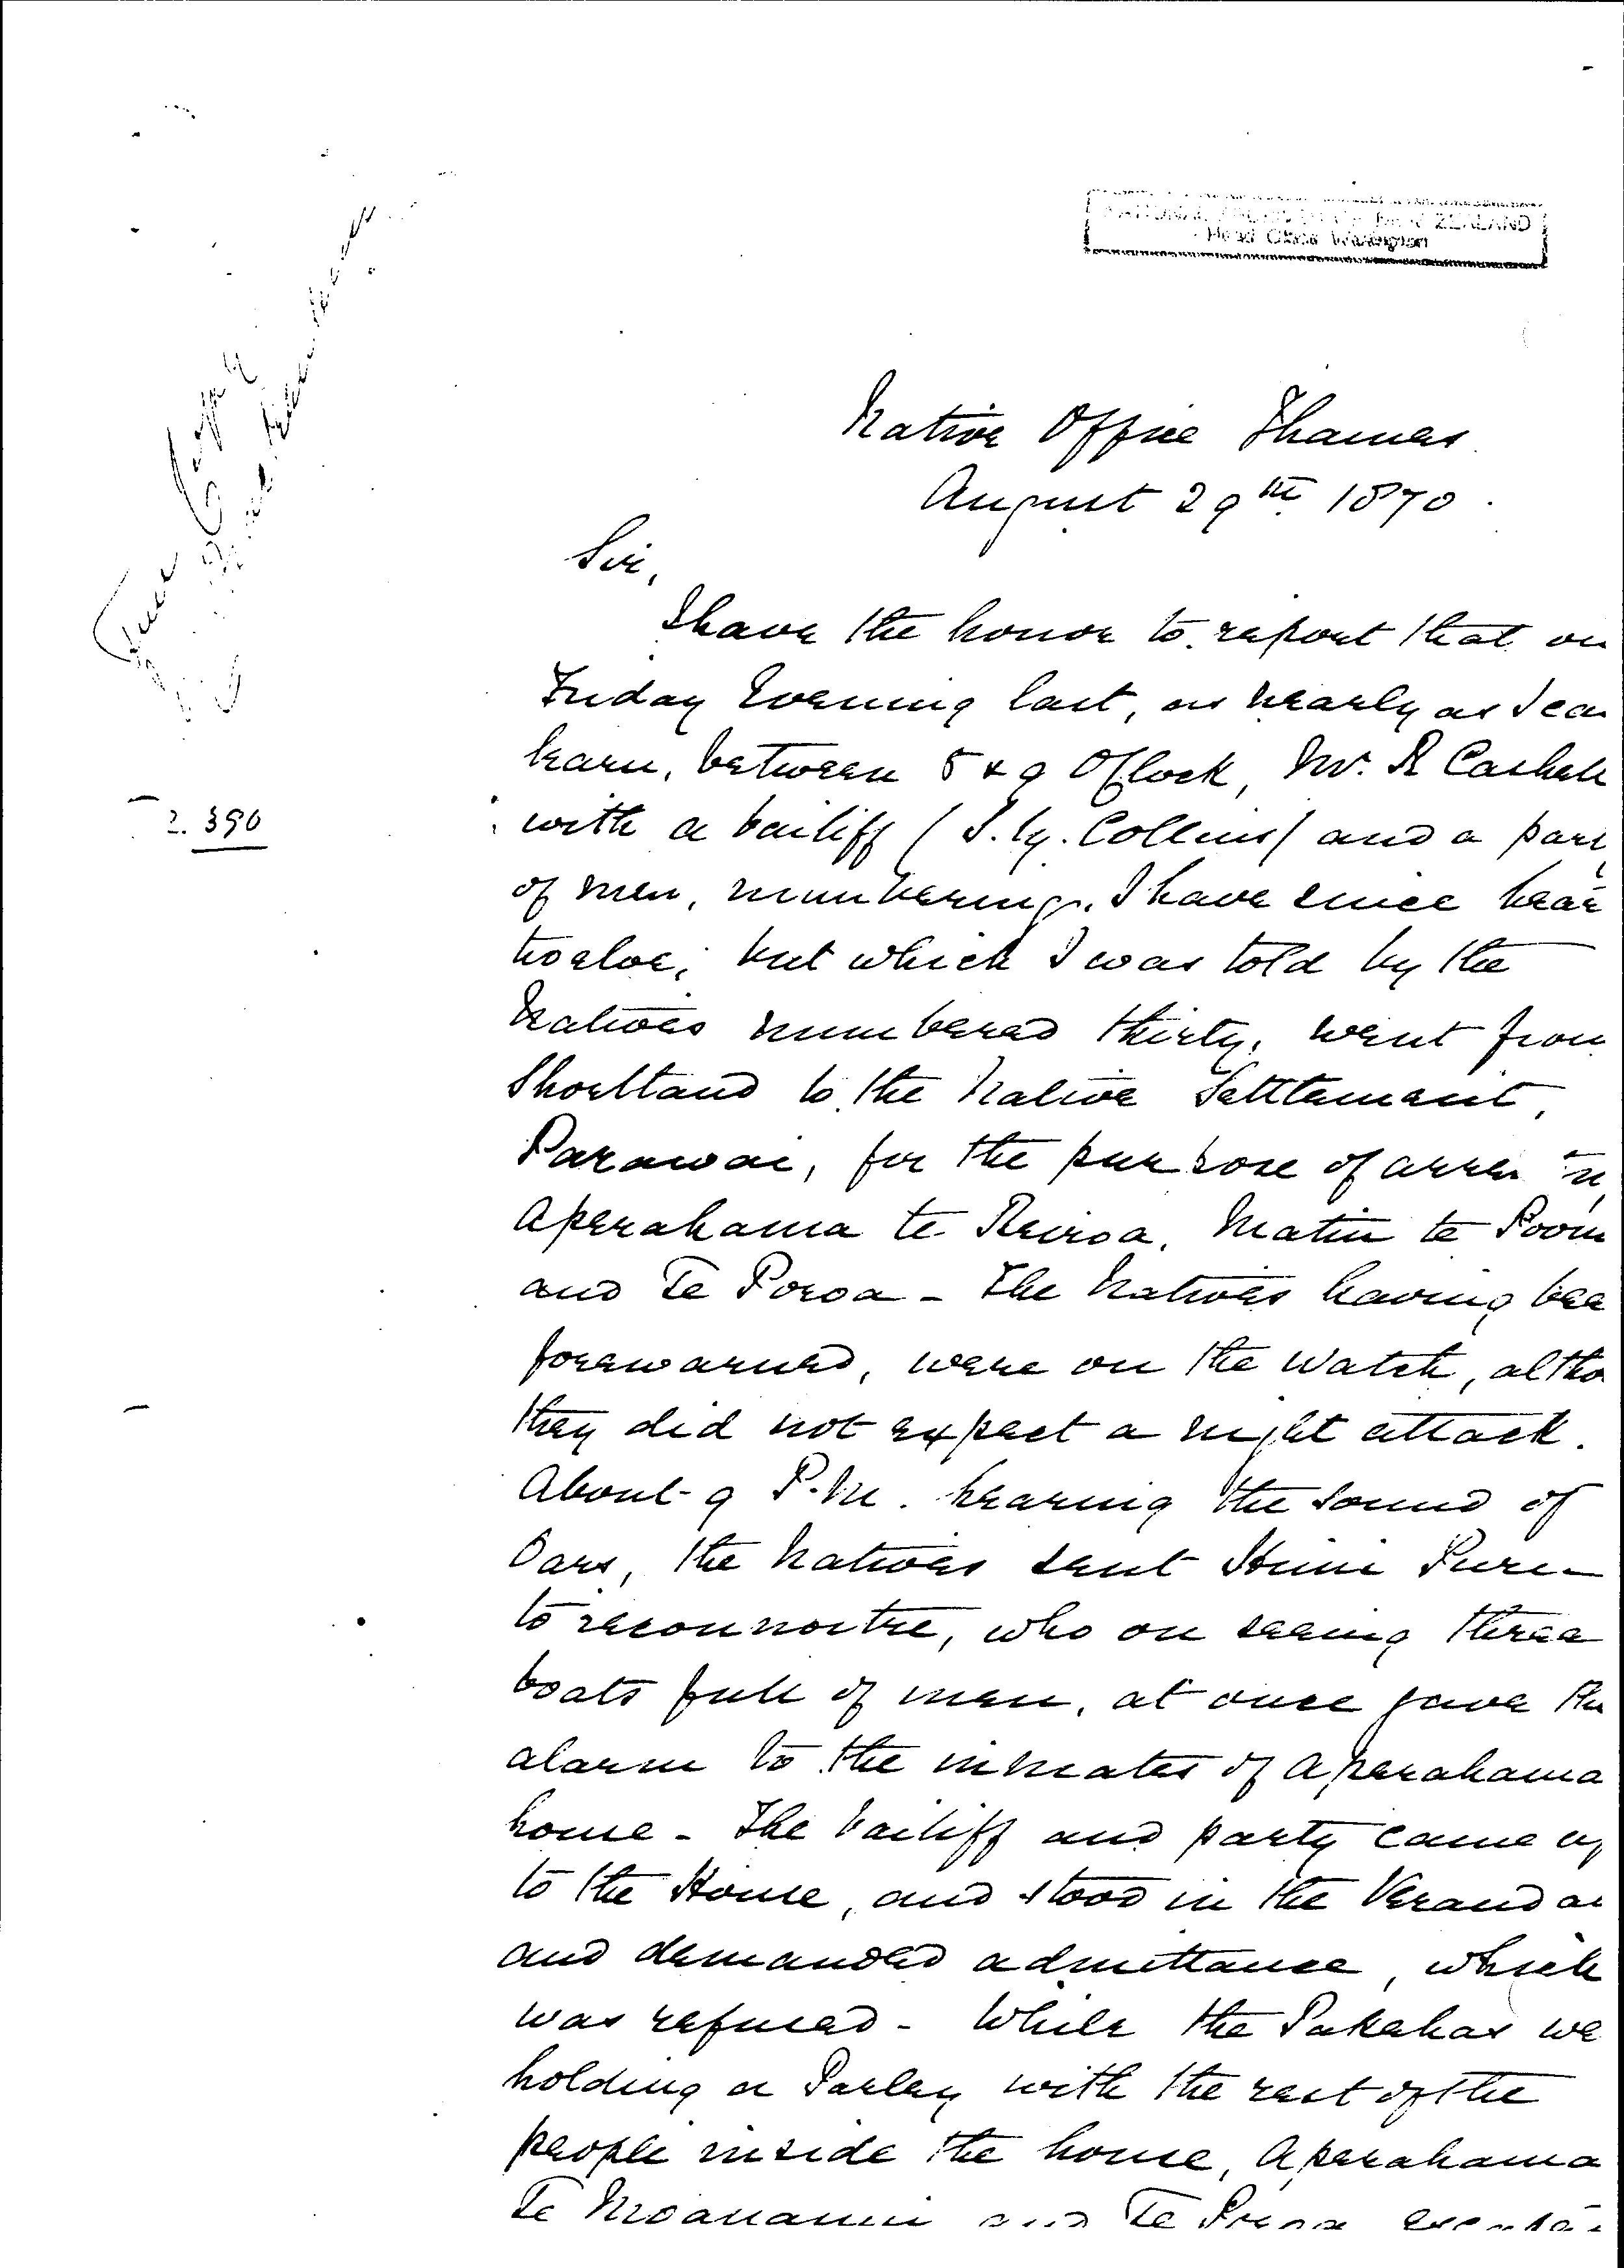 NATIONAL ARCHIVES OF NEW ZEALAND
Head Office Wellington
True Copy
2.390
Native Office Thames
August 29th 1870.
Sir,
I have the honor to report that on
Friday Evening last, as nearly as I ca
learn, between 8 & 9 O'Clock, Mr. R
with a bailiff (J. Y. Collins) and a part
of men, numbering, I have since hear
twelve, but which I was told by the
Natives numbered thirty, went from
Shortland to the Native Settlement,
Parawai, for the purpose of arres in
Aperahama te Reiroa, Matiu te Poono
and Te Poroa - The Natives having bee
forewarned, were on the Watch, altho
they did not expect a night attack.
About 9 P.M. hearing the sound of
Oars, the Natives sent Himi
to reconnoitre, who on seeing three
boats full of men, at once gave the
alarm to the inmates of Aperahama
house - The bailiff and party came up
to the House, and stood in the Verandah
and demanded admittance, which
was refused - While the Pakehas we
holding a Parley with the rest of the
people inside the house, Aperahama
Te Moananui and Te Poroa